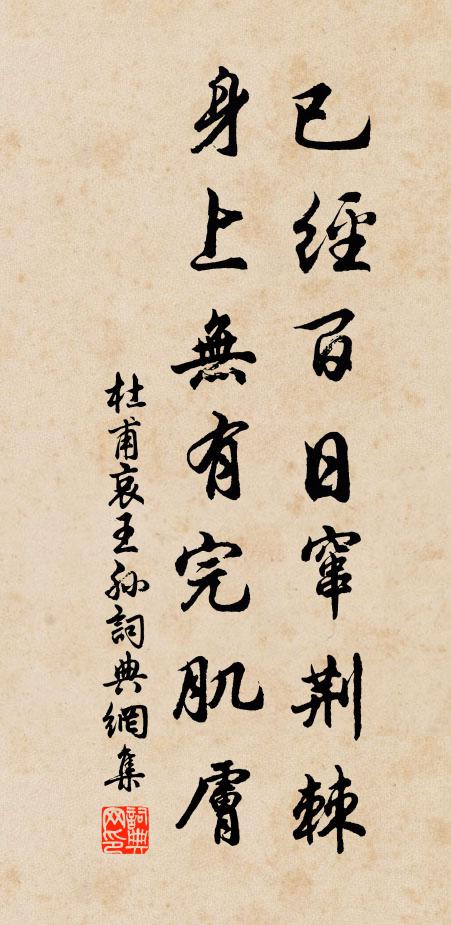 已經百日竄荆棘
身上無有完肌膚
杜甫哀王孫詞典網集
詞典网印